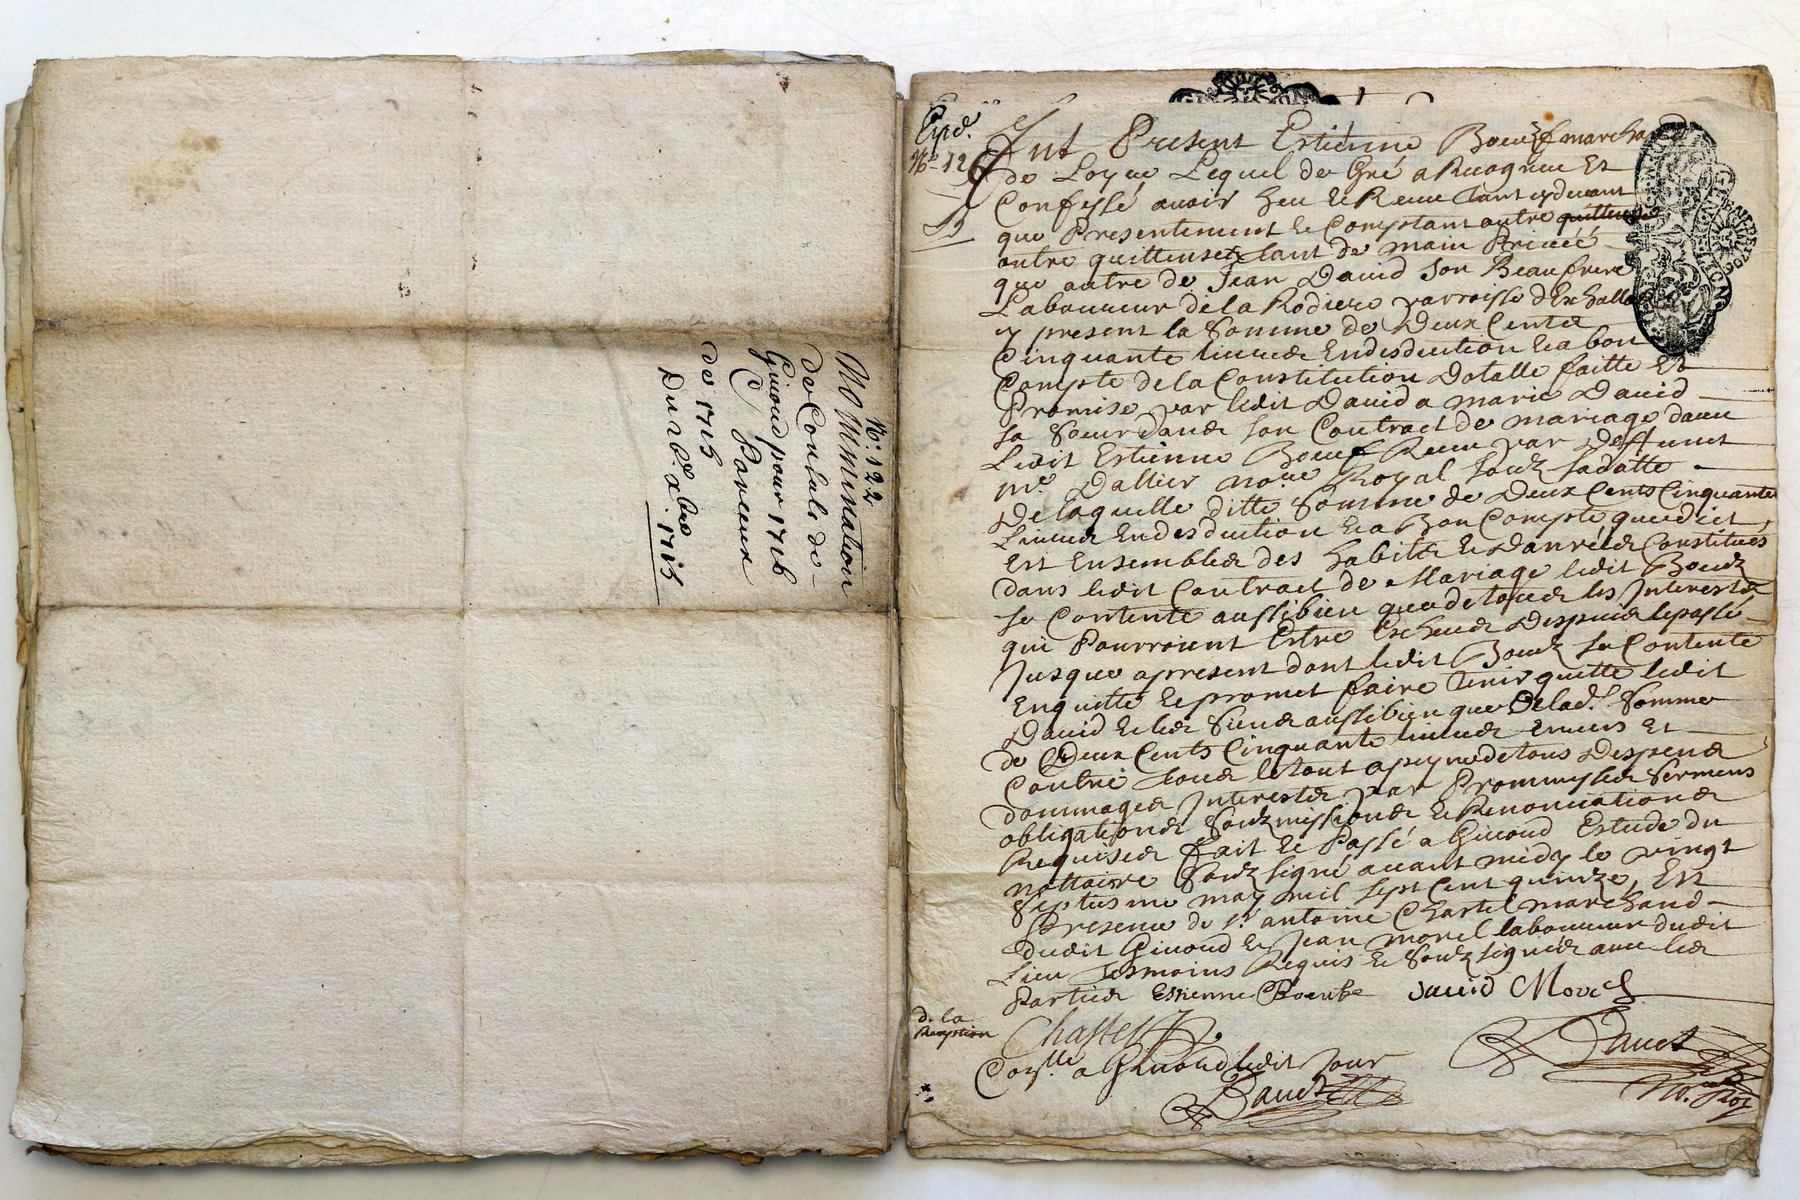 No. 122
Nommination
de Consuls de
Givord pour 1716
Pareux
de 1715
Du 26e xbre 1715
Expd.
No. 126
Fut Present Estienne Boeuf marchand
de Loyre Lequel de Gré a Recognu Et
Confessé avoir heu et Receu tant cydevant
que Presentement et Comptant autre
outre quittenses tant de main Privéé
que autre de Jean David Son Beaufrere
Laboureur de la Rodiere parroisse dEschallas
y present la Somme de Deux Centz
Cinquante livres En desduction et a bon
Compte de la Constitution Dotalle faitte Et
Promise par ledit David a marie David
sa Soeur dans son Contract de mariage avec
Ledit Estienne Boeuf Receu par Deffunct
me Dallier nore Royal Soubz Sadatte
De laquelle ditte Somme de Deux Cents Cinquante
Livres En desduction et a Bon Compte que dict
Est Ensembles des habitz et Danrées Constitués
dans ledit Contract de Mariage ledit Boeuf
se Contente aussibien que de tous les Interestz
qui Pourroient Estre Escheus Despuis le passé
Jusque apresent dont ledit Boeuf se Contente
En quitte et promet faire tenir quitte ledit
David et les Siens aussibien que De lad. Somme
de Deux Cents Cinquante livres Envers Et
Contre tous le tout a peyne de tous Despens
dommages Interestz par Prommesses Sermens
obligations Soubzmissions et Renonciations
Requises fait et Passé a Givord Estude du
nottaire Soubzsigné avant midy le vingt
Septiesme may mil Sept Cent quinze, En
Presence de sr. antoine Chastel marchand
dudit Givord et Jean morel laboureur dudit
Lieu Tesmoins Requis et Soubzsignés avec les
Parties Estienne Boeufe David Morel
de la
Reception
Chastel
Conlle a Givord ledit Jour
Dauct
Dauct
No. Roy.